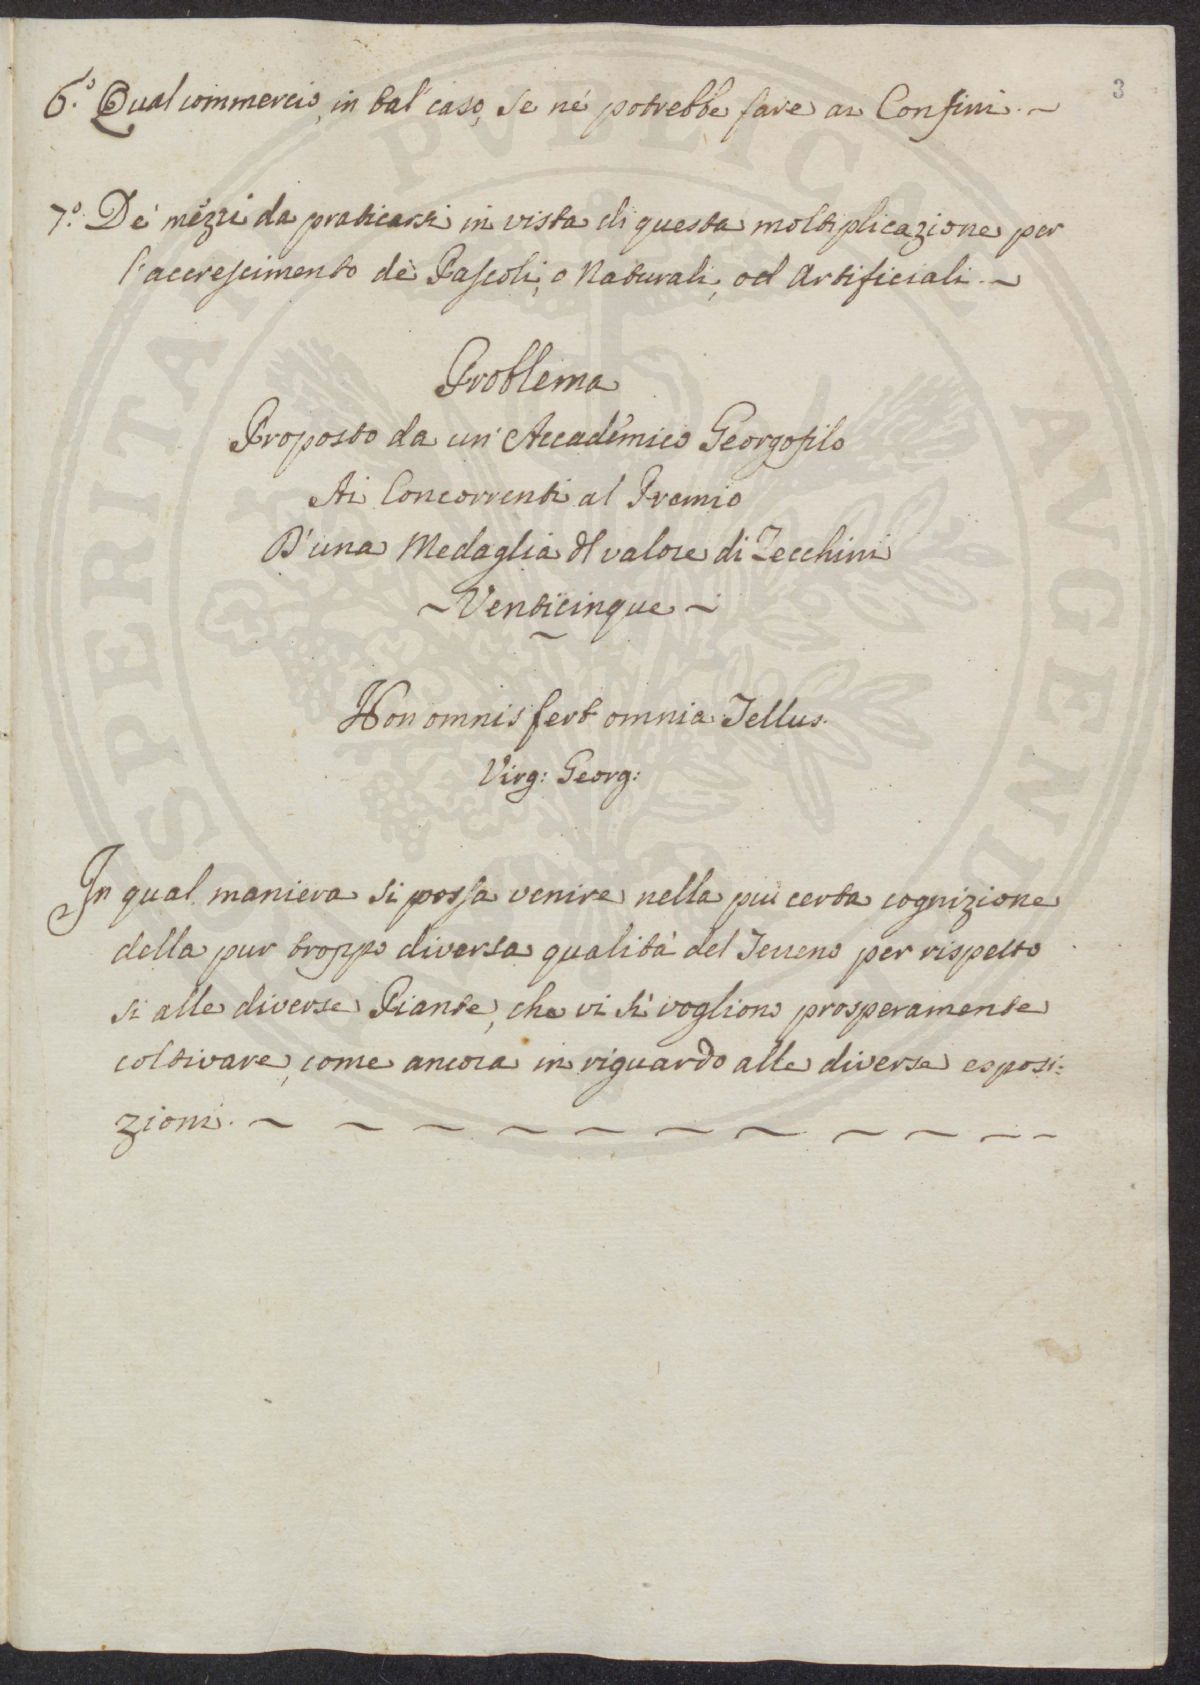 3
6.º Qual commercio, in tal caso, se né potrebbe fare ai Confini. ~
7.º De' mézzi da praticarsi in vista di questa moltiplicazione per
l'accrescimento de' Pascoli, o Naturali, od Artificiali. ~
Problema
Proposto da un' Accadémico Georgofilo
Ai Concorrenti al Premio
D'una Medaglia dl valore di Zecchini
~ Venticinque ~
Non omnis fert omnia Tellus.
Virg: Georg:
In qual maniera si possa venire nella più certa cognizione
della pur troppo diversa qualità del Terreno per rispetto
si alle diverse Piante, che vi si vogliono prosperamente
coltivare, come ancora in riguardo alle diverse esposi:
zioni. ~ ~ ~ ~ ~ ~ ~ ~ ~ ~ ~
PVBLICAE
AVGENDAE
PROSPERITATI